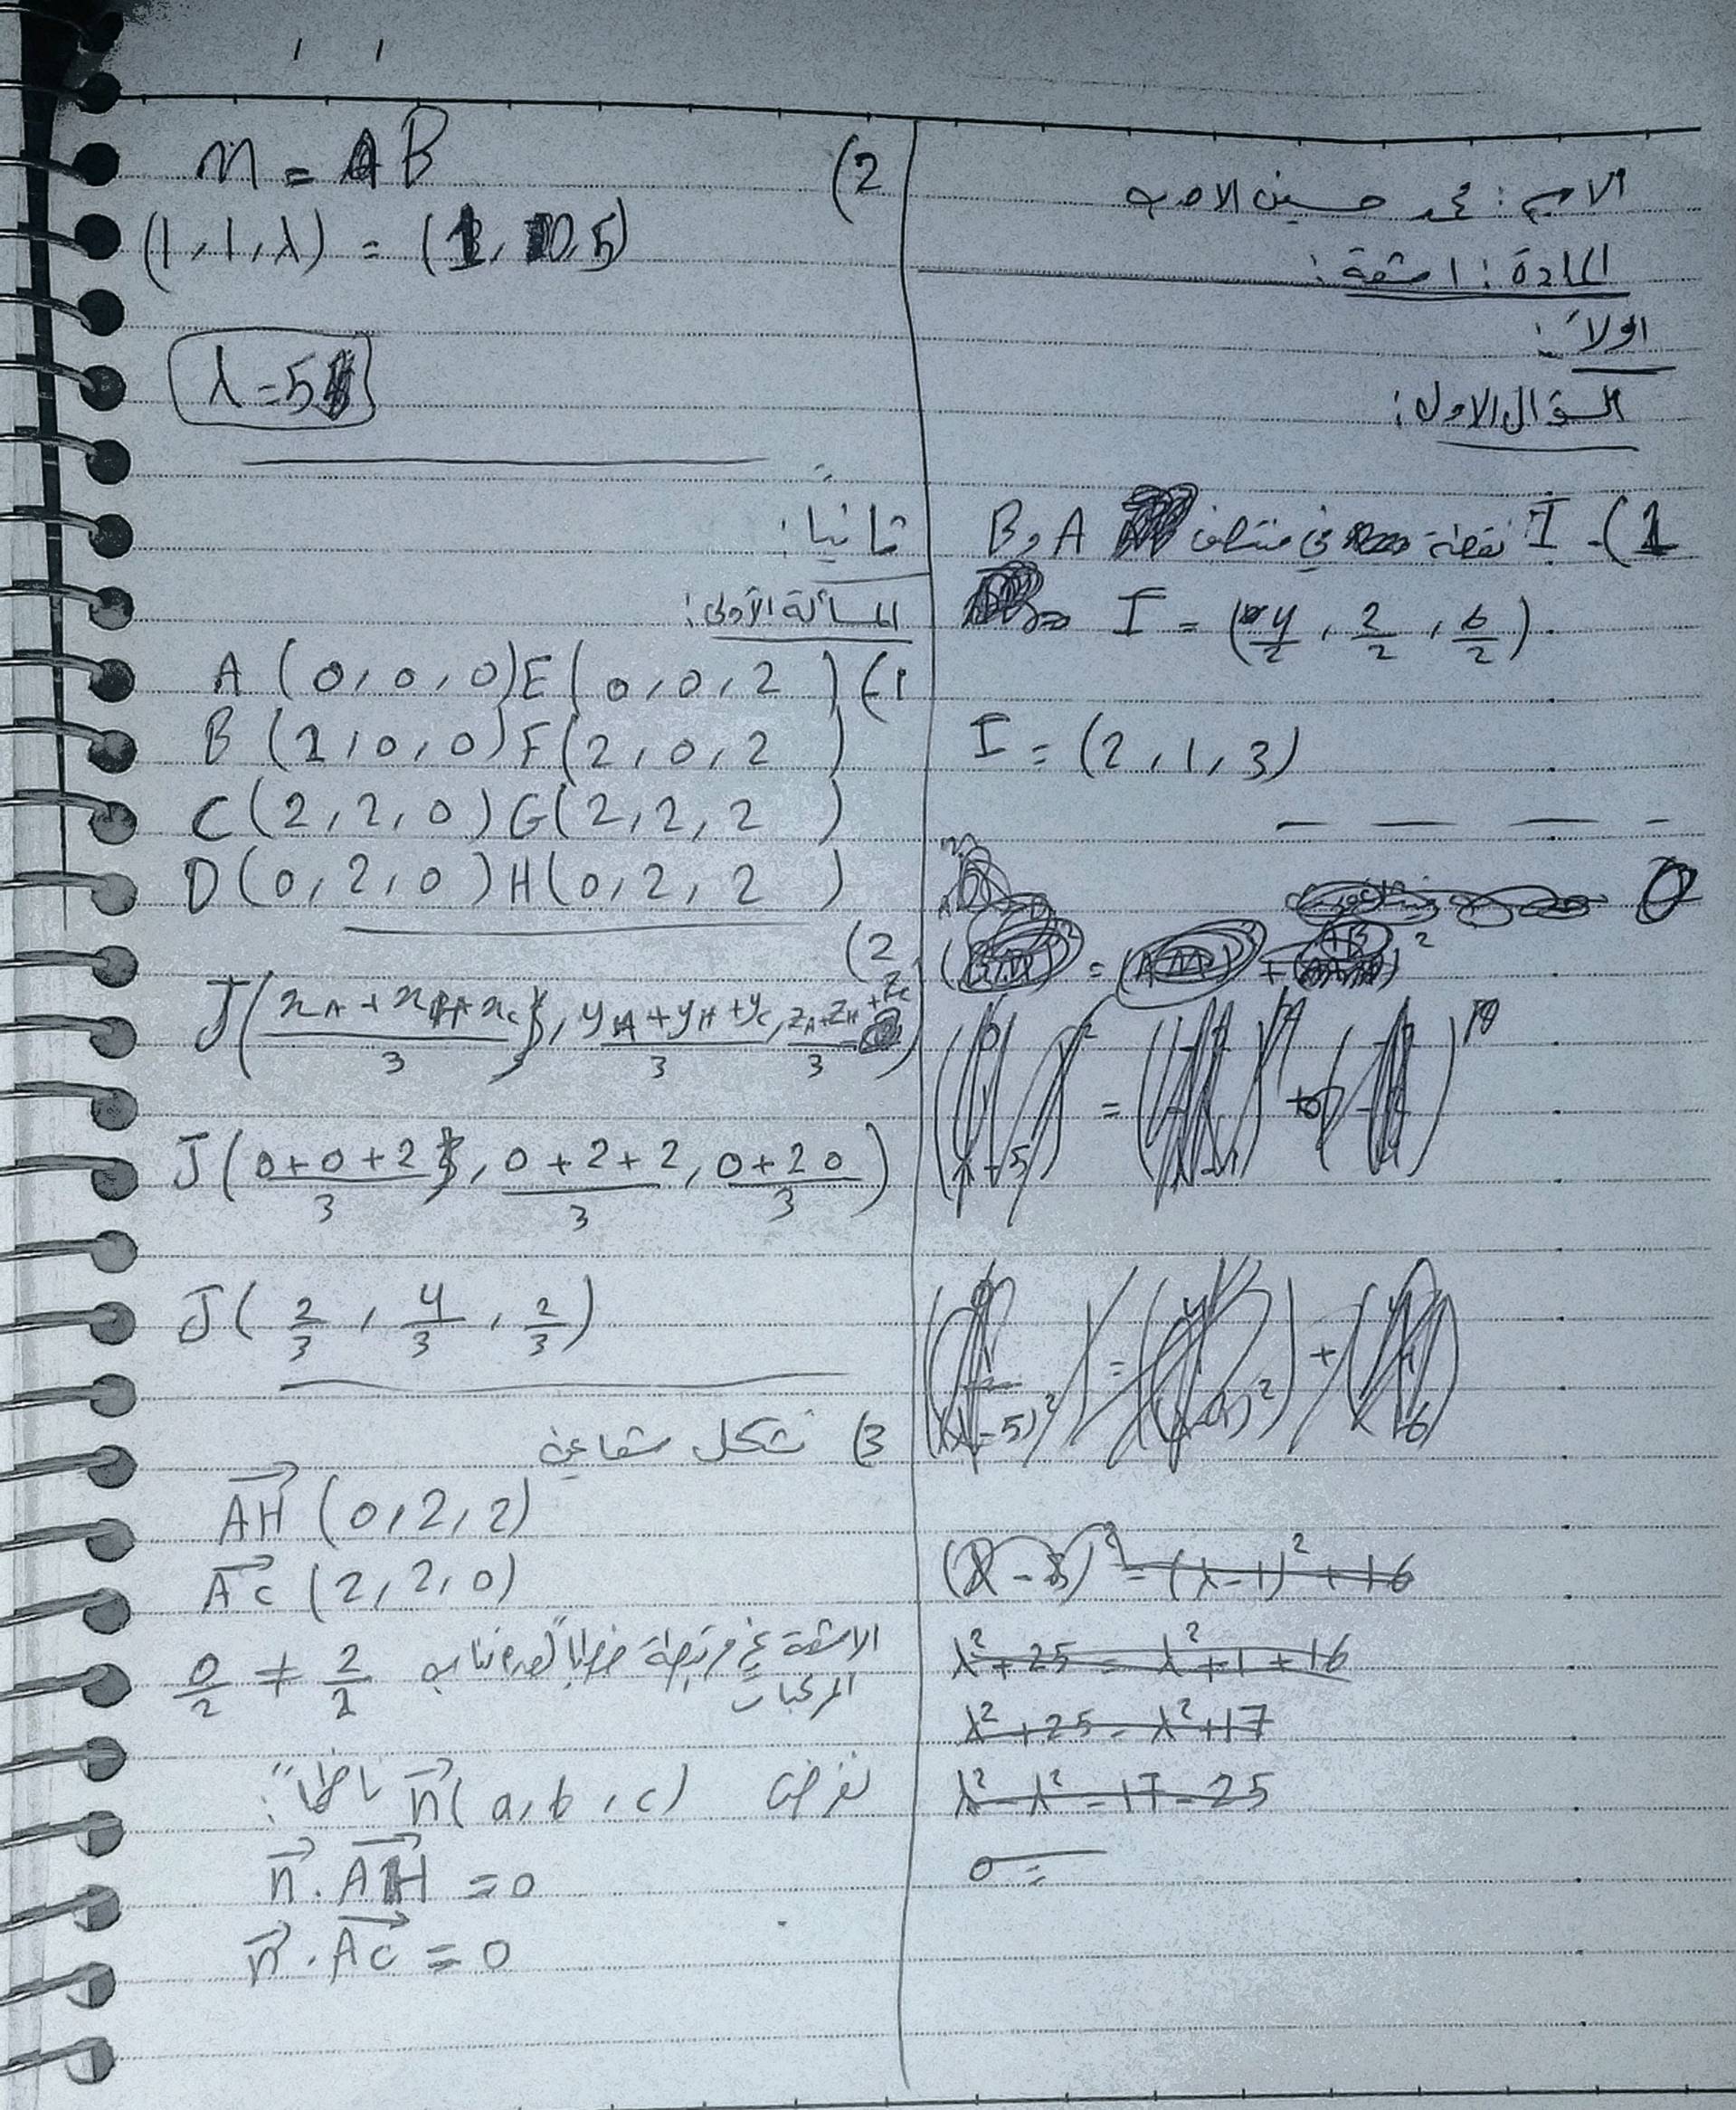 الاسم: محمد حسين الاحمد
المادة: اشعة:
اولاً:
السؤال الاول:
1)- I نقطة في منتصف A و B
I = (4/2, 2/2, 6/2)
I = (2, 1, 3)
= (λ-1)² + 16
λ² + 25 = λ² + 1 + 16
λ² + 25 = λ² + 17
λ² - λ² = 17 - 25
0 =
2)
m = AB
(1, 1, λ) = (1, 0, 5)
λ = 5
ثانياً:
المسألة الأولى:
1) A (0, 0, 0) E (0, 0, 2)
B (2, 0, 0) F (2, 0, 2)
C (2, 2, 0) G (2, 2, 2)
D (0, 2, 0) H (0, 2, 2)
2)
J( (x_A + x_H + x_C)/3, (y_A + y_H + y_C)/3, (z_A + z_H + z_C)/3 )
J( (0+0+2)/3, (0+2+2)/3, (0+2 0)/3 )
J( 2/3, 4/3, 2/3 )
3) نشكل شعاعين
AH (0, 2, 2)
AC (2, 2, 0)
الاشعة غير مرتبطة خطياً لعدم تناسب المركبات 0/2 ≠ 2/2
نفرض n(a, b, c) ناظماً:
n . AH = 0
n . AC = 0